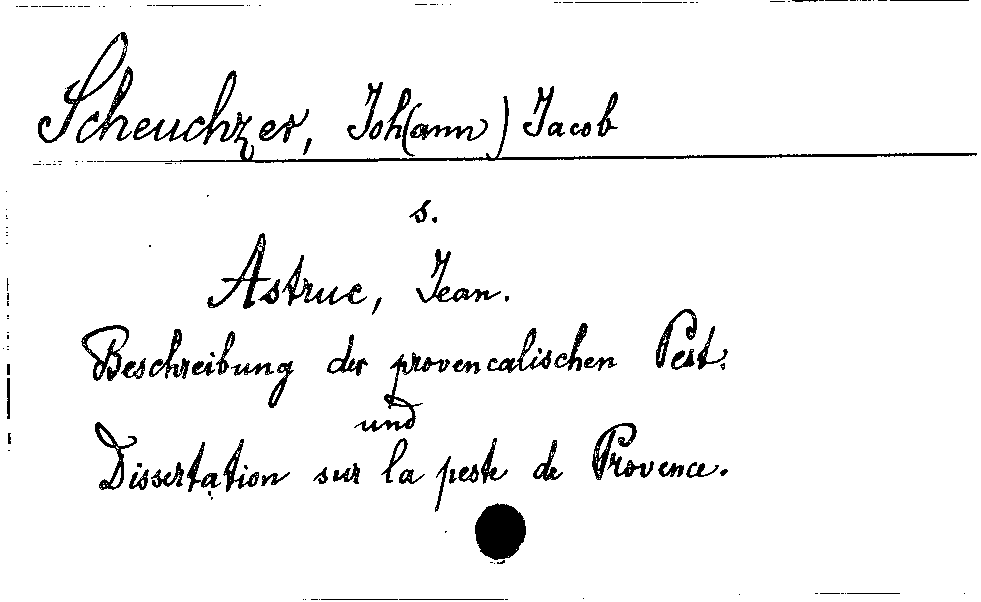 Scheuchzer, Joh(ann) Jacob
s.
Astruc, Jean.
Beschreibung der provencalischen Pest.
und
Dissertation sur la peste de Provence.